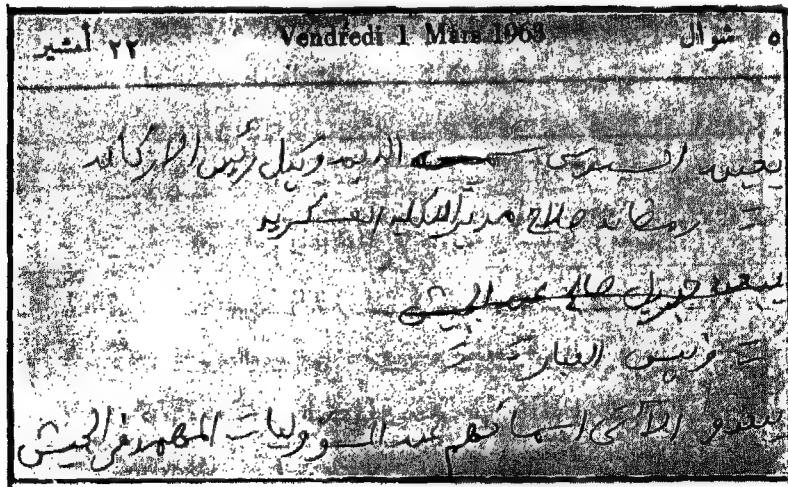 ٥ شوال Vendredi 1 Mars 1963 ٢٢ أمشير
يعين السيد شمس الدين وكيل رئيس الاركان
= رمضان صلاح مدير الكلية العسكرية
يبعد جبريل صالح عن الجيش
= رئيس
يبعدو الآتي اسمائهم عن المسؤوليات المهمة في الجيش